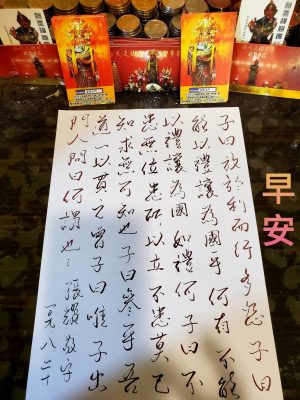 早安
子曰放於利而行多怨子曰
能以禮讓為國乎何有不能
以禮讓為國如禮何子曰不
患無位患所以立不患莫己
知求為可知也子曰參乎吾
道一以貫之曾子曰唯子出
門人問曰何謂也
敬字
八 二十